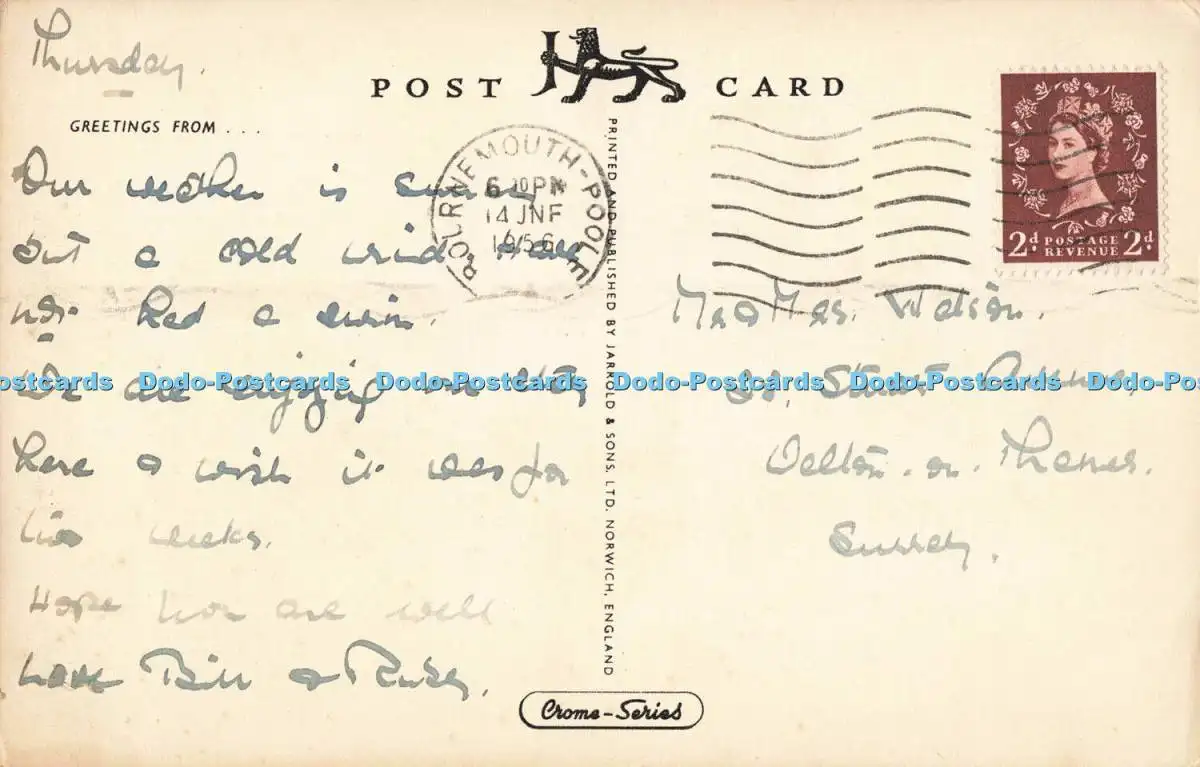 Thursday.
POST CARD
GREETINGS FROM . . .
Our weather is sunny
but a cold wind Have
not had a swim.
We are enjoying our stay
here & wish it was for
two weeks.
Hope you are well
Love Bill & Ruby.
BOURNEMOUTH-POOLE
6 30 PM
14 JNE
1956
PRINTED AND PUBLISHED BY JARROLD & SONS, LTD. NORWICH, ENGLAND
2d. POSTAGE REVENUE 2d.
Mr & Mrs. Watson.
Stuart Avenue,
Walton. on. Thames.
Surrey.
Crome-Series
Dodo-Postcards Dodo-Postcards Dodo-Postcards Dodo-Postcards Dodo-Postcards Dodo-Po